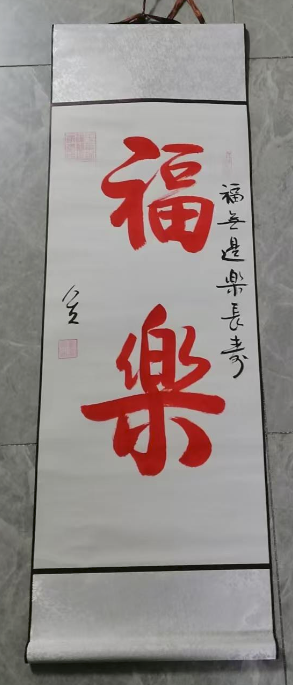 福無邊樂長壽
福樂